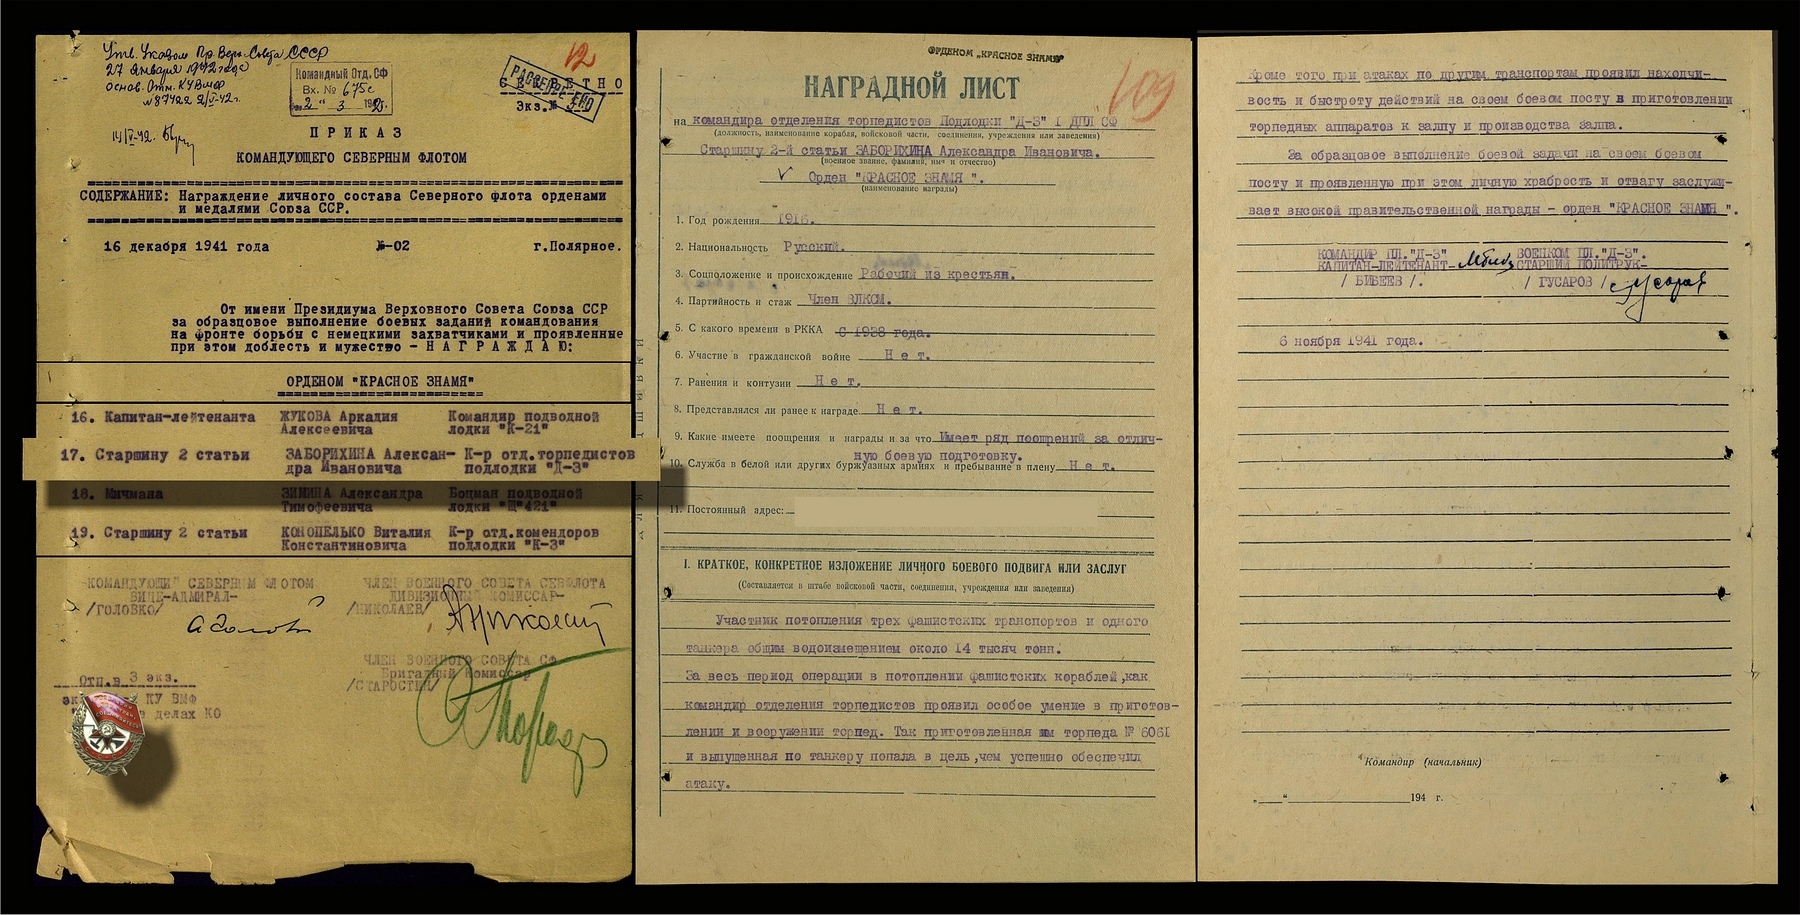 Утв. Указом Пр. Верх. Совета СССР
27 января 1942 года
основ. Отн. КУВМФ
Командный Отд. СФ
Вх. № 675с
12
РАССЕКРЕЧЕНО
СЕКРЕТНО
Экз.№
ПРИКАЗ
КОМАНДУЮЩЕГО СЕВЕРНЫМ ФЛОТОМ
СОДЕРЖАНИЕ: Награждение личного состава Северного флота орденами
и медалями Союза ССР.
16 декабря 1941 года №-02 г.Полярное.
От имени Президиума Верховного Совета Союза ССР
за образцовое выполнение боевых заданий командования
на фронте борьбы с немецкими захватчиками и проявленные
при этом доблесть и мужество - Н А Г Р А Ж Д А Ю:
ОРДЕНОМ "КРАСНОЕ ЗНАМЯ"
16. Капитан-лейтенанта ЖУКОВА Аркадия Командир подводной
Алексеевича лодки "К-21"
17. Старшину 2 статьи ЗАБОРИХИНА Алексан- К-р отд.торпедистов
дра Ивановича подлодки "Д-3"
18. Мичмана ЗИМИНА Александра Боцман подводной
Тимофеевича лодки "Щ"421"
19. Старшину 2 статьи КОНОПЕЛЬКО Виталия К-р отд.комендоров
Константиновича подлодки "К-3"
КОМАНДУЮЩИ СЕВЕРНЫМ ФЛОТОМ ЧЛЕН ВОЕННОГО СОВЕТА СЕВФЛОТА
ВИЦЕ-АДМИРАЛ- ДИВИЗИОННЫЙ КОМИССАР-
/ГОЛОВКО/ /НИКОЛАЕВ/
ЧЛЕН ВОЕННОГО СОВЕТА СФ
Бригадный Комиссар
/СТАРОСТИН/
Отп.в 3 экз.
КУ ВМФ
в делах КО
ОРДЕНОМ „КРАСНОЕ ЗНАМЯ"
109
НАГРАДНОЙ ЛИСТ
на командира отделения торпедистов Подлодки "Д-3" I ДПЛ СФ
(должность, наименование корабля, войсковой части, соединения, учреждения или заведения)
Старшину 2-й статьи ЗАБОРИХИНА Александра Ивановича.
(военное звание, фамилия, имя и отчество)
Орден "КРАСНОЕ ЗНАМЯ ".
(наименование награды)
1. Год рождения 1916.
2. Национальность Русский.
3. Соцположение и происхождение Рабочий из крестьян.
4. Партийность и стаж Член ВЛКСМ.
5. С какого времени в РККА С 1938 года.
6. Участие в гражданской войне Н е т.
7. Ранения и контузии Н е т.
8. Представлялся ли ранее к награде Н е т.
9. Какие имеете поощрения и награды и за что Имеет ряд поощрений за отлич-
ную боевую подготовку.
10. Служба в белой или других буржуазных армиях и пребывание в плену Н е т.
11. Постоянный адрес:
I. КРАТКОЕ, КОНКРЕТНОЕ ИЗЛОЖЕНИЕ ЛИЧНОГО БОЕВОГО ПОДВИГА ИЛИ ЗАСЛУГ
(Составляется в штабе войсковой части, соединения, учреждения или заведения)
Участник потопления трех фашистских транспортов и одного
танкера общим водоизмещением около 14 тысяч тонн.
За весь период операции в потоплении фашистских кораблей ,как
командир отделения торпедистов проявил особое умение в приготов-
лении и вооружении торпед. Так приготовленная им торпеда № 6061
и выпущенная по танкеру попала в цель ,чем успешно обеспечил
атаку.
Кроме того при атаках по другим транспортам проявил находчи-
вость и быстроту действий на своем боевом посту в приготовлении
торпедных аппаратов к залпу и производства залпа.
За образцовое выполнение боевой задачи на своем боевом
посту и проявленную при этом личную храбрость и отвагу заслужи-
вает высокой правительственной награды - орден "КРАСНОЕ ЗНАМЯ ".
КОМАНДИР ПЛ."Д-3" ВОЕНКОМ ПЛ."Д-3".
КАПИТАН-ЛЕЙТЕНАНТ- СТАРШИЙ ПОЛИТРУК-
/ БИБЕЕВ /. / ГУСАРОВ /
6 ноября 1941 года.
Командир (начальник)
„ “ 194 г.